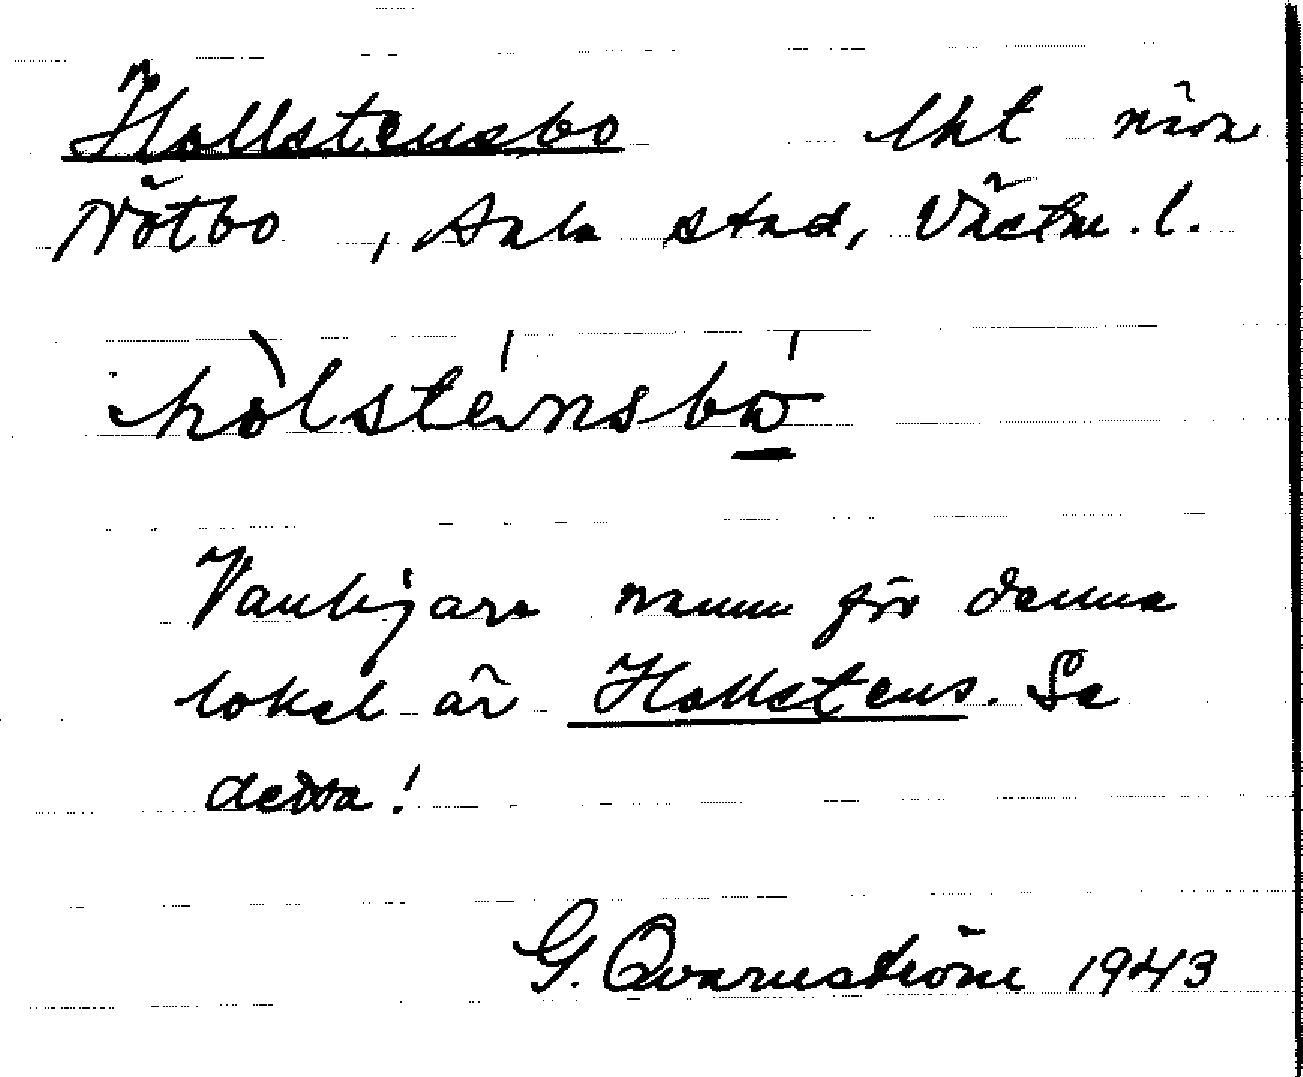 Hollstensbo lht nära
Nötbo, Sala stad, Västm. l.
hòlsténsbó
Vanligare namn för denna
lokal är Hollstens. Se
detta!
G. Qvarnström 1943